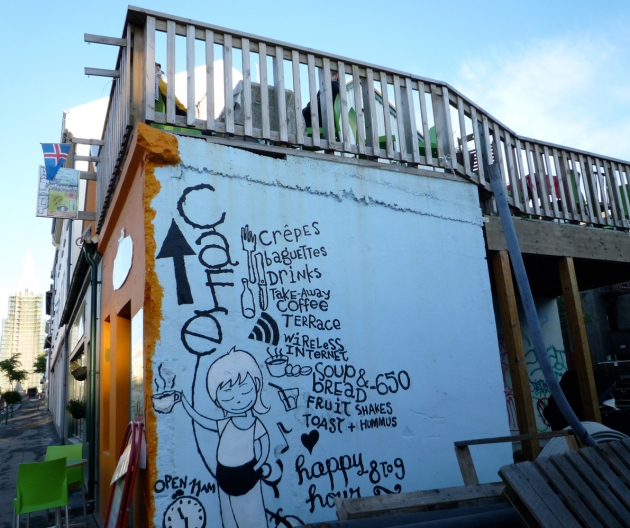 Café
Crêpes
baguettes
Drinks
Take-Away
Coffee
Terrace
Wireless
Internet
Soup &
Bread -650
Fruit Shakes
Toast + Hummus
happy 8 to 9
hour
Open 11am